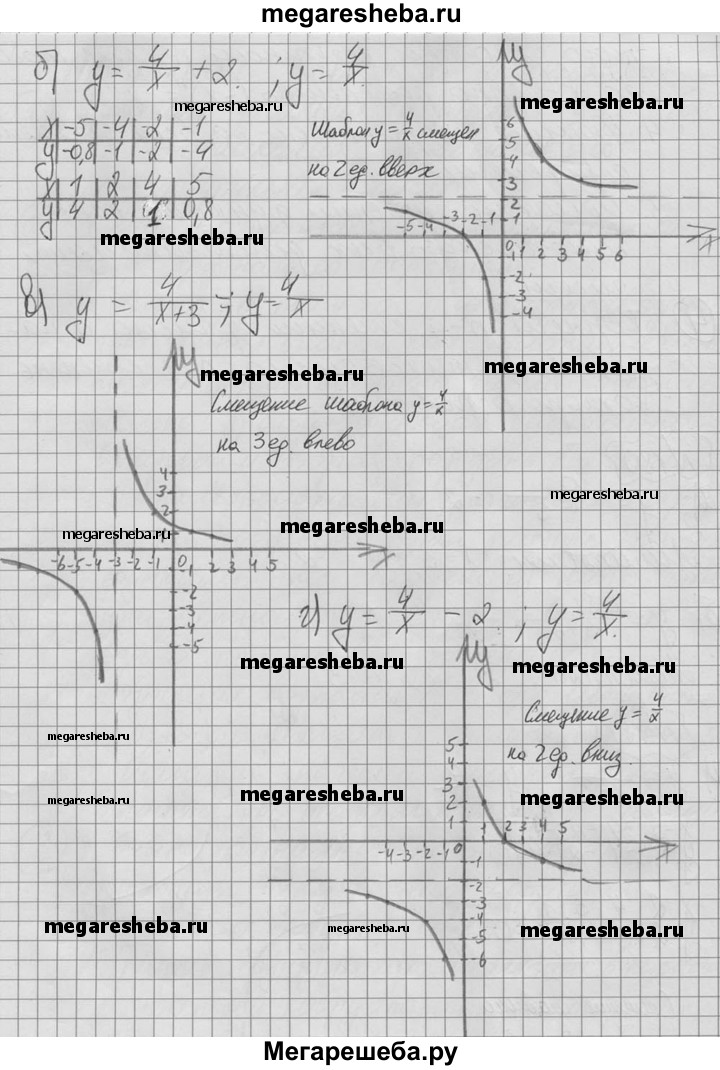 megaresheba.ru
б) y = 4/x + 2. ; y = 4/x.
megaresheba.ru
x | -5 | -4 | -2 | -1
y | -0,8 | -1 | -2 | -4
x | 1 | 2 | 4 | 5
y | 4 | 2 | 1 | 0,8
megaresheba.ru
Шаблон y = 4/x смещен
на 2 ед. вверх
y
megaresheba.ru
6
5
4
3
2
1
-5 -4 -3 -2 -1
0 1 2 3 4 5 6
x
-1
-2
-3
-4
megaresheba.ru
в) y = 4/x+3 ; y = 4/x
y
megaresheba.ru
Смещение шаблона y = 4/x
на 3 ед. влево
megaresheba.ru
megaresheba.ru
megaresheba.ru
4
3
2
-6 -5 -4 -3 -2 -1 0 1 2 3 4 5
x
-1
-2
-3
-4
-5
г) y = 4/x - 2. ; y = 4/x.
megaresheba.ru
megaresheba.ru
y
Смещение y = 4/x
на 2 ед. вниз.
megaresheba.ru
megaresheba.ru
megaresheba.ru
megaresheba.ru
5
4
3
2
1
-4 -3 -2 -1 0
1 2 3 4 5
x
-1
-2
-3
-4
-5
-6
megaresheba.ru
megaresheba.ru
megaresheba.ru
Мегарешеба.ру